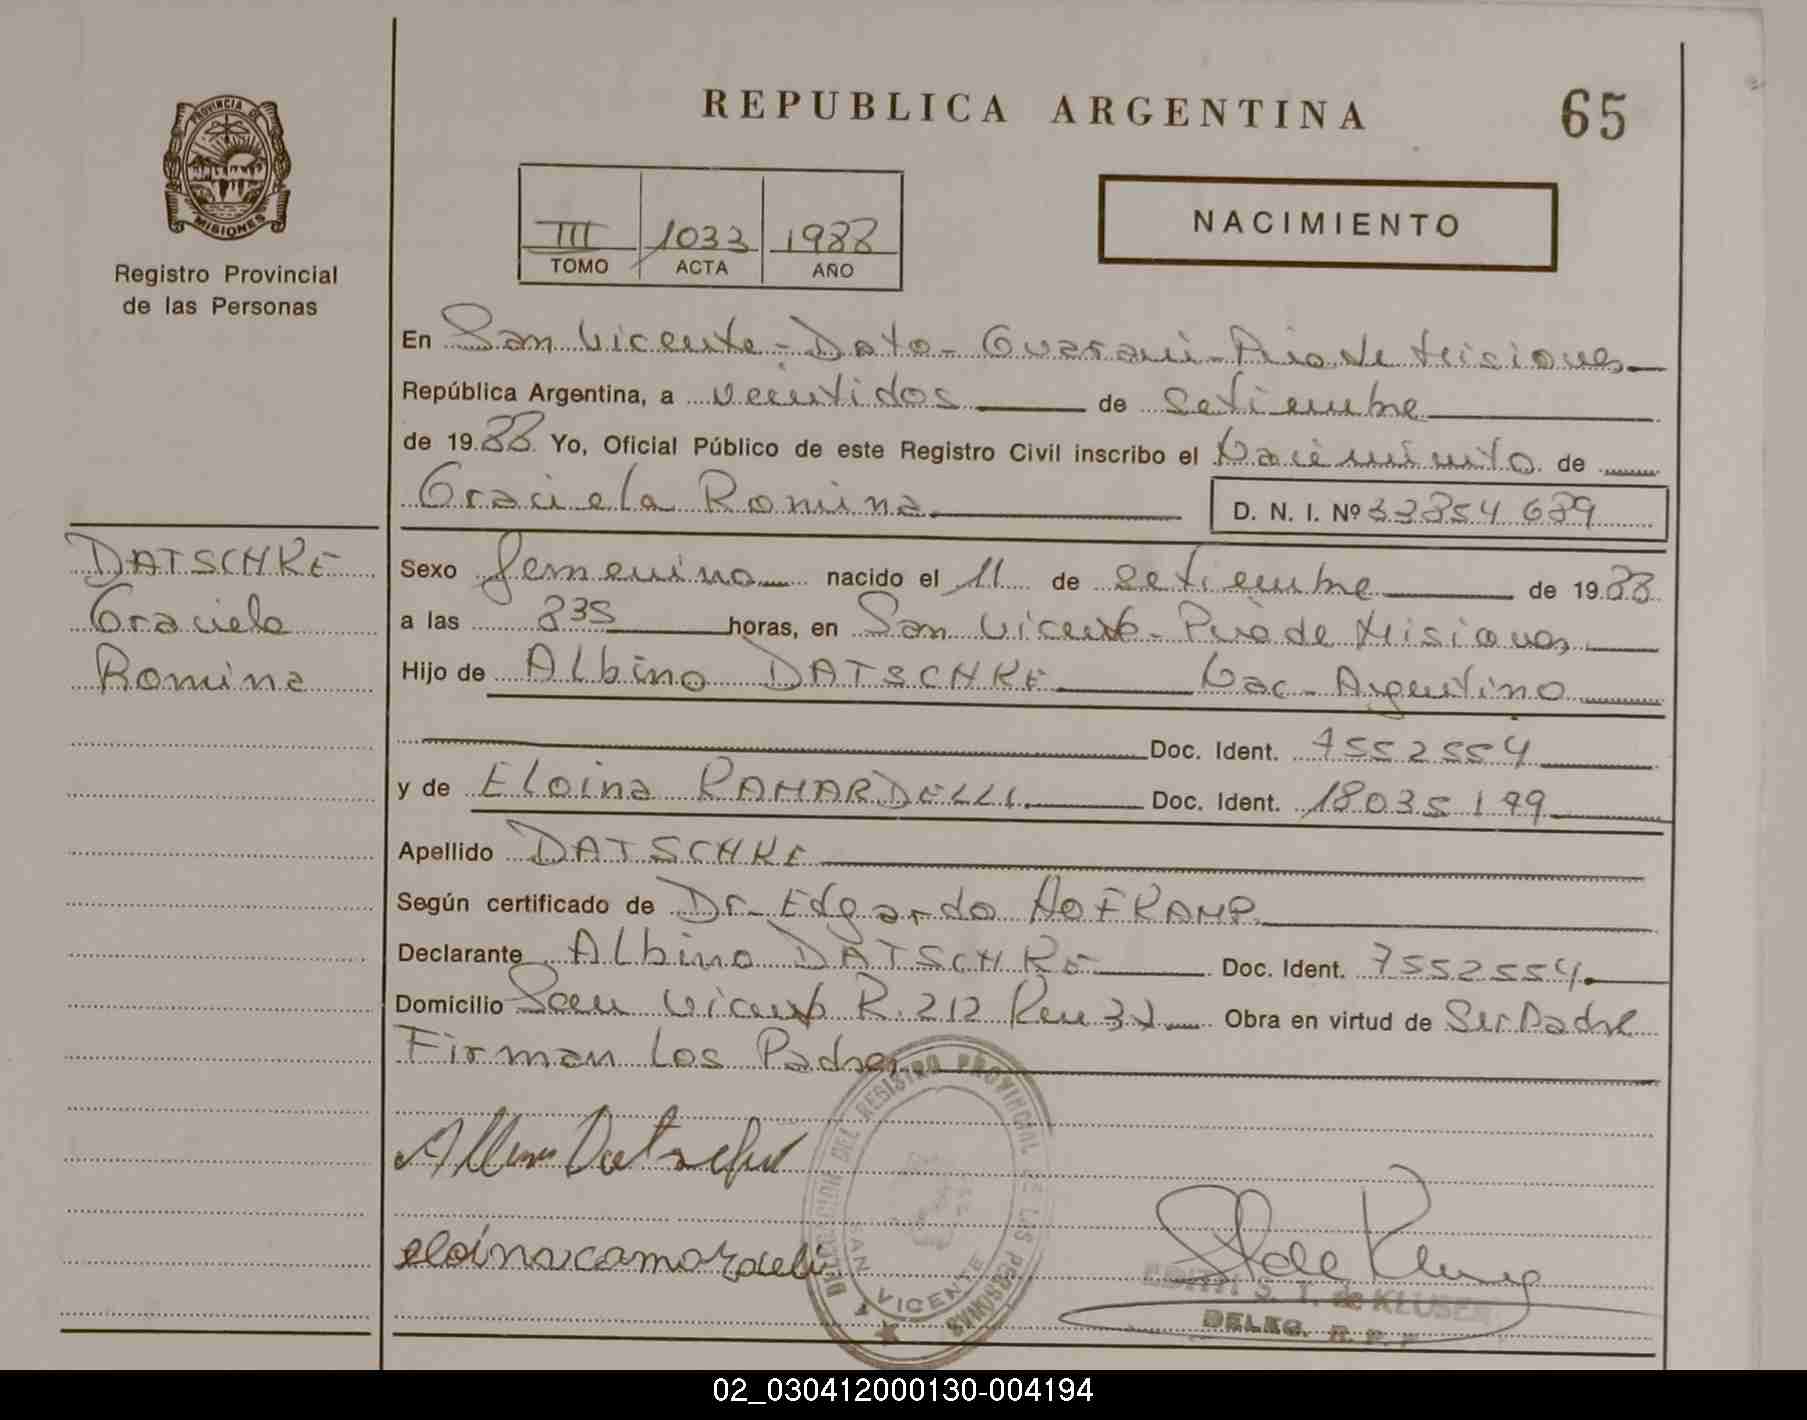 REPUBLICA ARGENTINA
65
PROVINCIA DE
MISIONES
Registro Provincial
de las Personas
III 1033 1988
TOMO ACTA AÑO
NACIMIENTO
En San Vicente - Dpto - Guaraní - Pcia de Misiones
República Argentina, a veintidos de setiembre
de 1988 Yo, Oficial Público de este Registro Civil inscribo el Nacimiento de
Graciela Romina
D. N. I. Nº 33354 639
DATSCHKE
Graciela
Romina
Sexo femenino nacido el 11 de setiembre de 1988
a las 835 horas, en San Vicente - Pcia de Misiones
Hijo de Albino DATSCHKE Nac - Argentino
Doc. Ident. 7552554
y de Eloina Doc. Ident. 18035199
Apellido DATSCHKE
Según certificado de Dr. Edgardo HOFKAMP
Declarante Albino DATSCHKE Doc. Ident. 7552554
Domicilio San Vicente R. 212 Km Obra en virtud de Ser Padre
Firman los Padres
DELEGACION DEL REGISTRO PROVINCIAL DE LAS PERSONAS
SAN VICENTE
eloina camardeli
EDITH S. T. de KLUSEN
DELEG. R. P. P
02_030412000130-004194